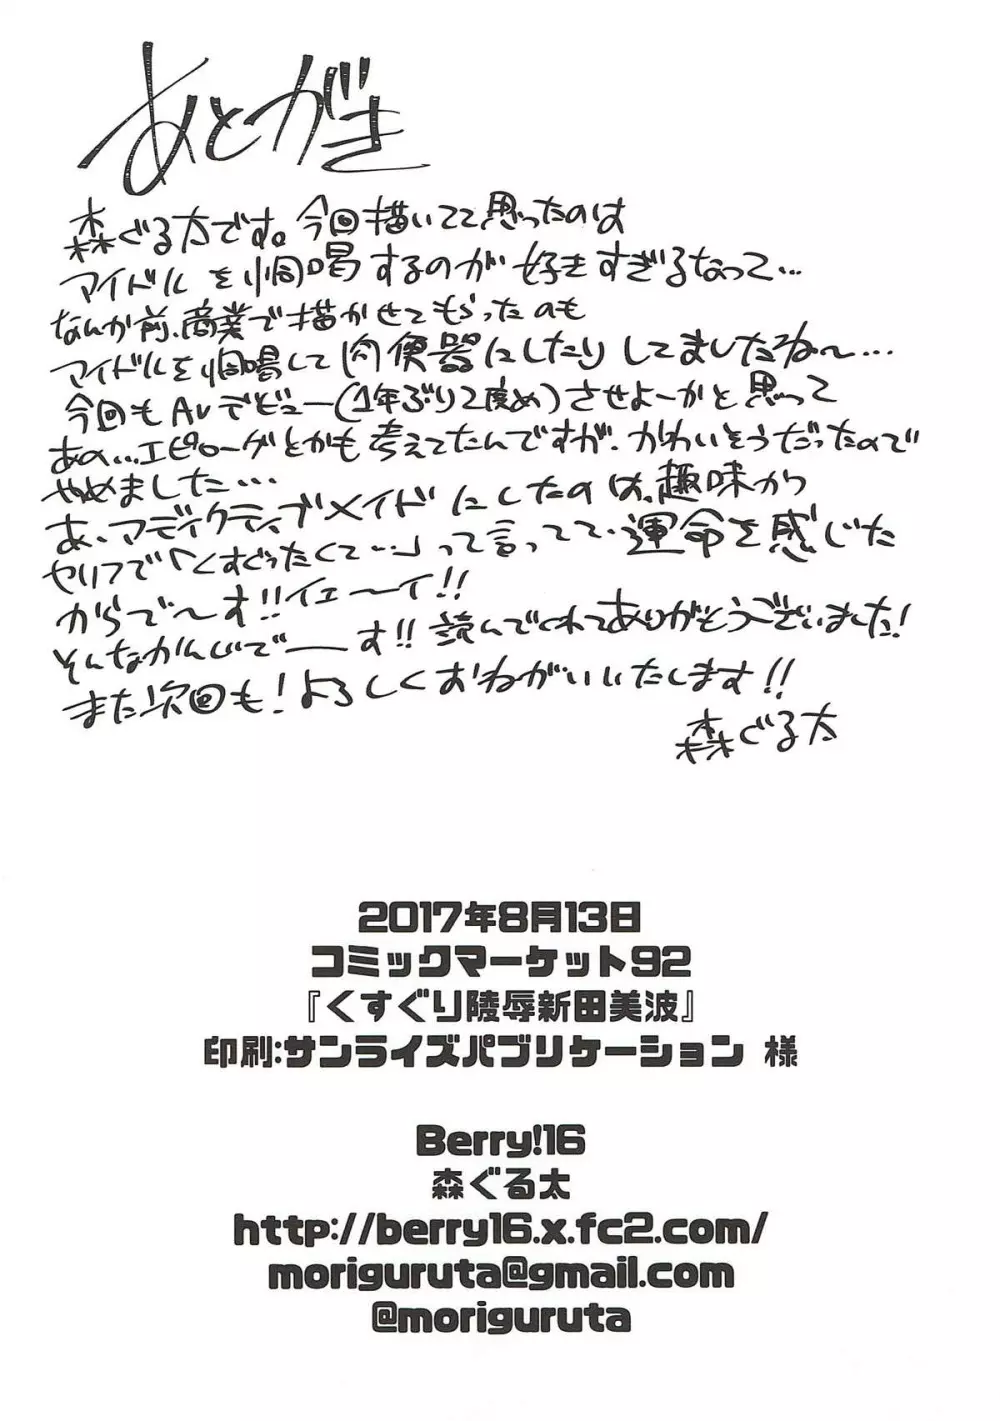 あとがき
森ぐる太です。今回描いてて思ったのは
アイドルを恫喝するのが好きすぎるなって…
なんか前、商業で描かせてもらったのも
アイドルを恫喝して肉便器にしたりしてましたね〜…
今回もAVデビュー(1年ぶり2度め)させよーかと思って
あの…エピローグとかも考えてたんですが、かわいそうだったので
やめました…
あ、アディクティブメイドにしたのは、趣味かつ
セリフで「くすぐったくて…」って言ってて、運命を感じた
からで〜す!!イェ〜イ!!
そんなかんじで──す!!読んでくれてありがとうございました!
また次回も!よろしくおねがいいたします!!
森ぐる太
2017年8月13日
コミックマーケット92
『くすぐり陵辱新田美波』
印刷:サンライズパブリケーション 様
Berry!16
森ぐる太
http://berry16.x.fc2.com/
moriguruta@gmail.com
@moriguruta